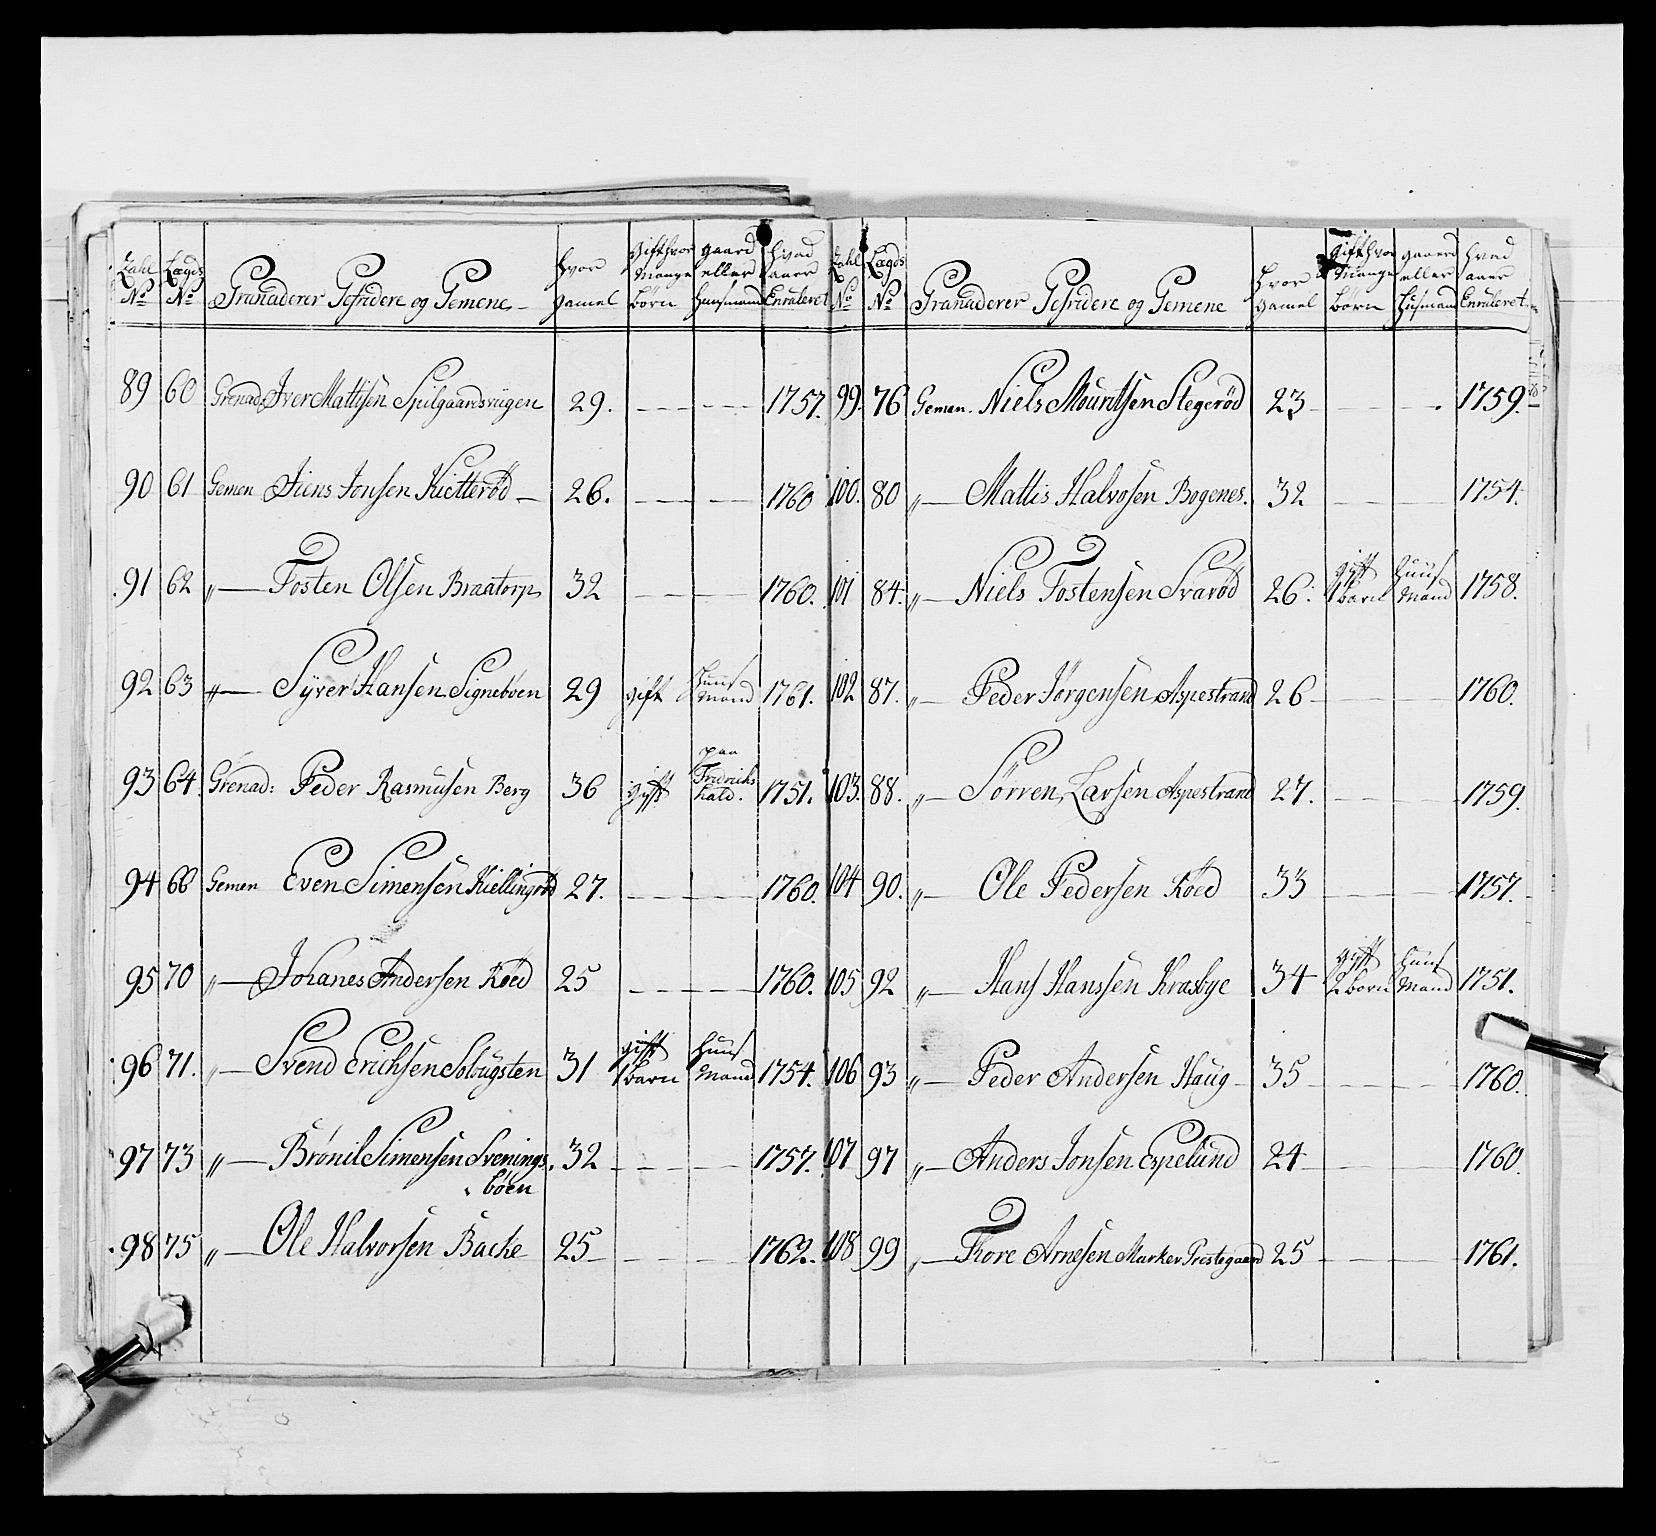 Zahl No | Lægds No | Granaderer Gefridere og Gemene | Hvor gamel | Gift hvor Mange börn | gaard eller Huusmand | Hvad aaer Enruleret
89 | 60 | Grenad: Iver Mattisen Spilgaardsviigen | 29. | — | — | 1757.
90 | 61 | Gemen Jiens Jonsen Kietteröd | 26. | — | — | 1760
91 | 62 | „— Tosten Olsen Braatorp | 32 | — | — | 1760.
92 | 63 | „— Syver Hansen Signebøen | 29 | gift | Huus Mand | 1761.
93 | 64. | Grenad: Peder Rasmusen Berg | 36 | gift | paa Fridrichs hald. | 1751.
94 | 66 | Gemen Even Simensen Kiellingröd | 27. | — | — | 1760.
95 | 70 | „— Johanes Andersen Röed | 25 | — | — | 1760.
96 | 71. | „— Svend Erichsen Solbugsten | 31 | gift 1 barn | Huus Mand | 1754.
97 | 73 | „— Brönil Simensen Svenings böen | 32 | — | — | 1757.
98 | 75 | „— Ole Halvorsen Bache | 25 | — | — | 1762.
Zahl No | Lægds No | Granaderer Gefridere og Gemene | Hvor gamel | Gift hvor Mange börn | gaaerd eller Husmand | Hvad aaer Enruleret
99. | 76 | Gemen. Niels Mouritsen Stegeröd | 23 | — | — | 1759.
100. | 80 | „— Mattis Halvosen Bogenes. | 32 | — | — | 1754.
101 | 84. | „— Niels Tostensen Svaröd | 26. | gift 1 barn | Huus Mand | 1758.
102 | 87. | „— Peder Jörgensen Aspestrand | 26 | — | — | 1760.
103. | 88. | „— Sörren Larsen Aspestrand | 27. | — | — | 1759.
104 | 90. | „— Ole Pedersen Röed | 33 | — | — | 1757.
105 | 92 | „— Hans Hanssen Krasbye | 34 | gift 2 börn | Huus Mand | 1751.
106 | 93 | „— Peder Andersen Haug | 35 | — | — | 1760.
107 | 97 | „— Anders Jonsen Espelund | 24 | — | — | 1760.
108 | 99 | „— Thore Arnesen Marker Prestegaard | 25 | — | — | 1761.